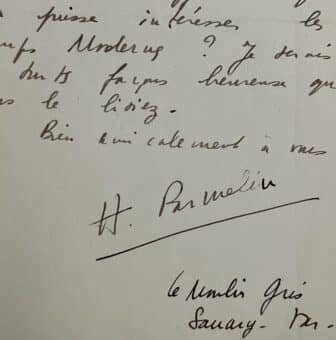 puisse intéresser les
Temps Modernes ? Je serais
de toutes façons heureuse que
vous le lisiez.
Bien amicalement à vous
H. Parmelin
Le Moulin Gris
Sanary - Var -